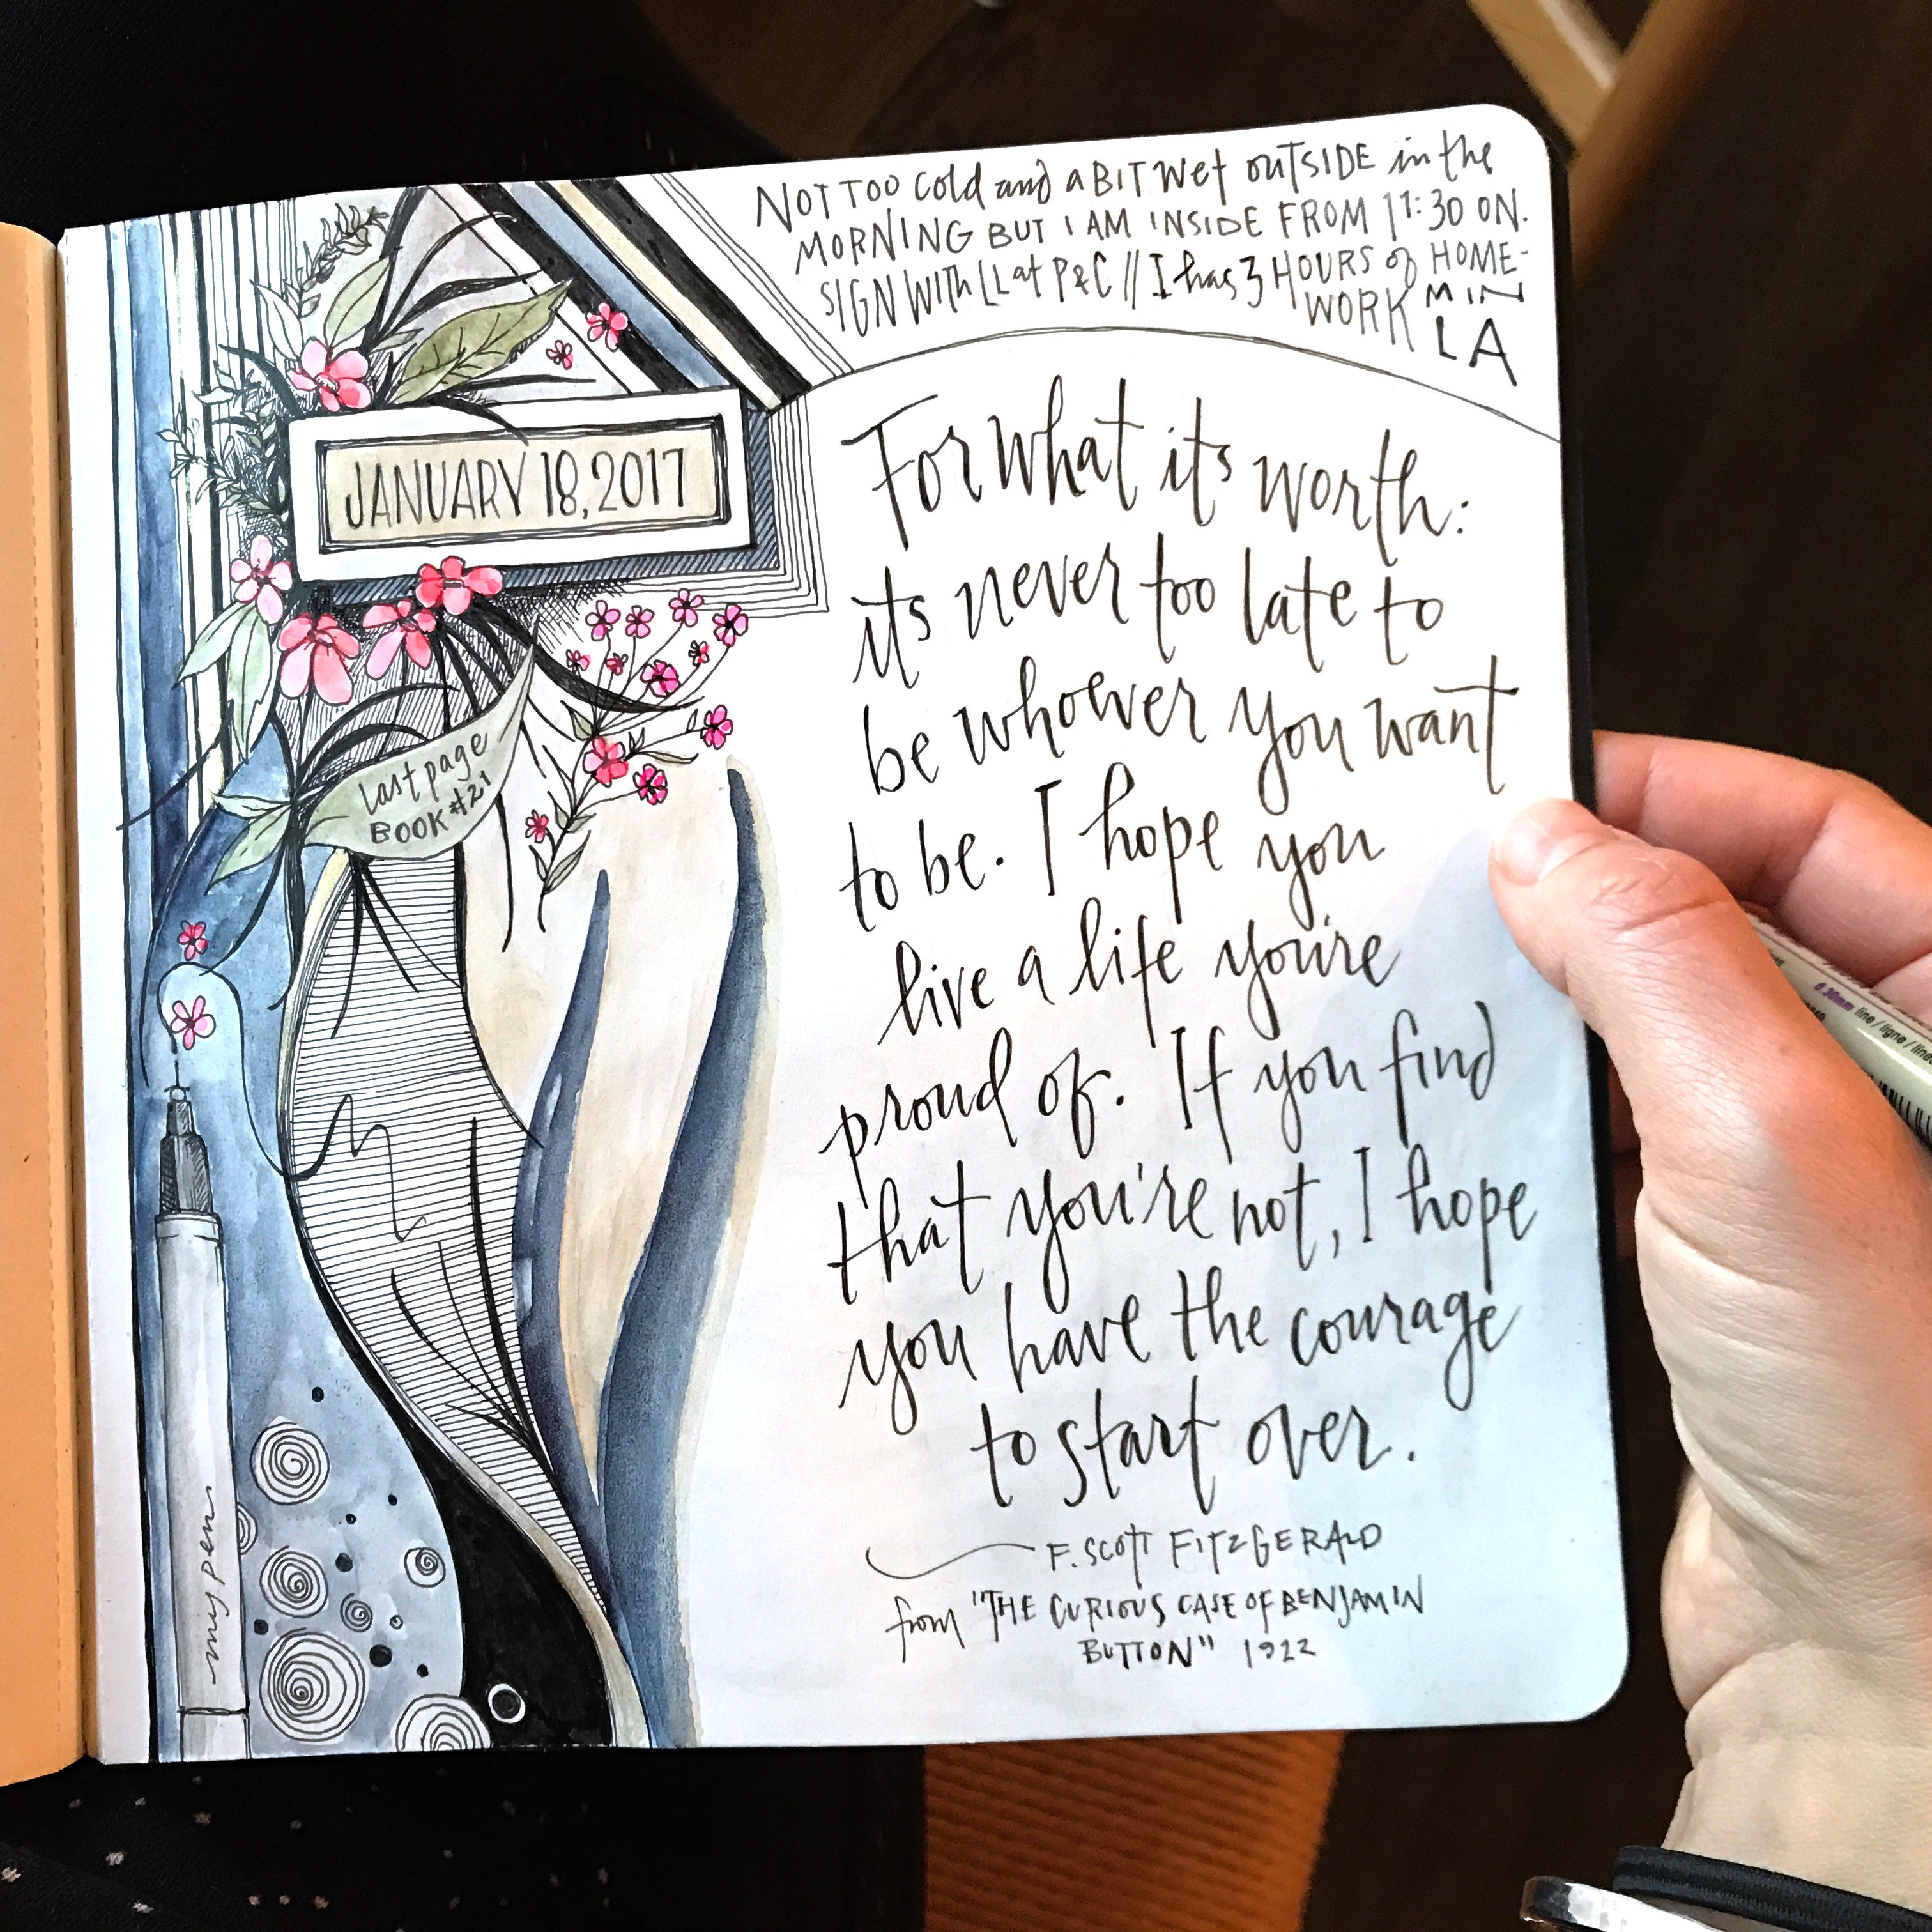 NOT TOO cold and a BIT wet outSIDE in the
MORNING BUT I AM INSIDE FROM 11:30 ON.
SIGN WITH LL at P&C // I has 3 HOURS of HOME-
WORK M IN
LA
JANUARY 18, 2017
last page
BOOK #21
my pen
For what it's worth:
it's never too late to
be whoever you want
to be. I hope you
live a life you're
proud of. If you find
that you're not, I hope
you have the courage
to start over.
F. SCOTT FITZGERALD
from "THE CURIOUS CASE OF BENJAMIN
BUTTON" 1922
0.30mm line / ligne /